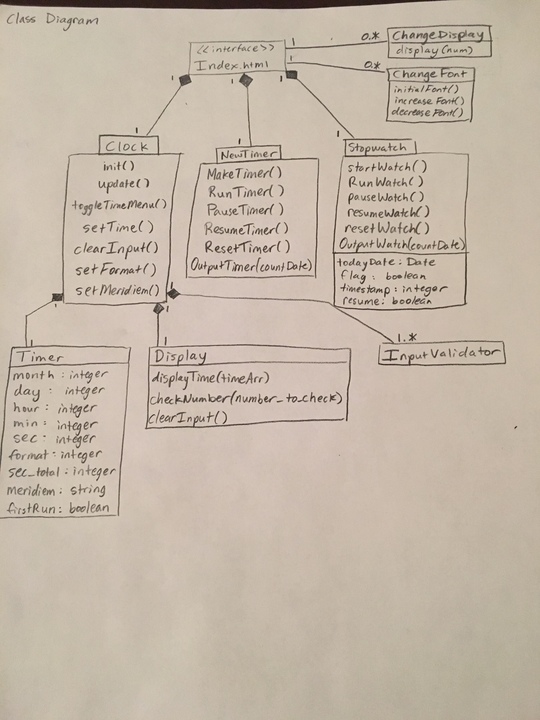 Class Diagram
<<interface>>
Index.html
1
0..*
ChangeDisplay
display(num)
1
0..*
ChangeFont
initialFont()
increaseFont()
decreaseFont()
1
1
1
1
Clock
init()
update()
toggleTimeMenu()
setTime()
clearInput()
setFormat()
setMeridiem()
1
NewTimer
MakeTimer()
RunTimer()
PauseTimer()
ResumeTimer()
ResetTimer()
OutputTimer(countDate)
1
Stopwatch
startWatch()
RunWatch()
pauseWatch()
resumeWatch()
resetWatch()
OutputWatch(countDate)
todayDate: Date
flag: boolean
timestamp: integer
resume: boolean
1
1
1
1
Timer
month: integer
day: integer
hour: integer
min: integer
sec: integer
format: integer
sec_total: integer
meridiem: string
firstRun: boolean
1
Display
displayTime(timeArr)
checkNumber(number_to_check)
clearInput()
1..*
InputValidator